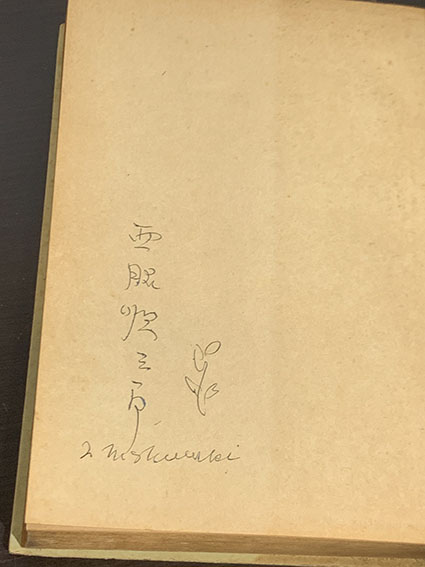 西脇順三郎
J. Nishiwaki